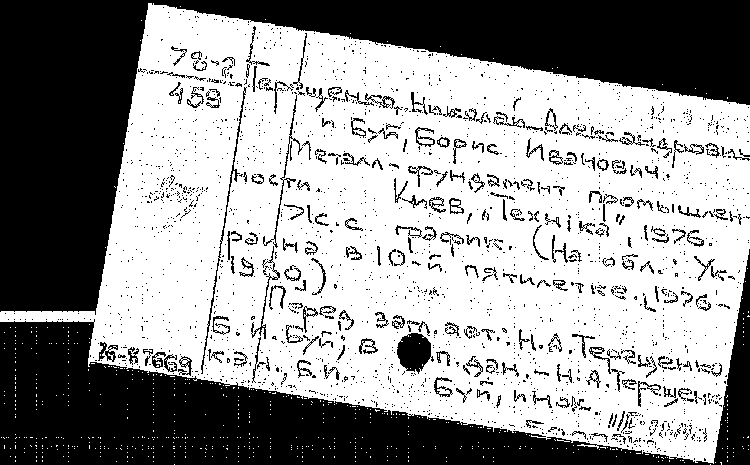 78-2
459
Терещенко, Николай Александрович
и Буй, Борис Иванович.
Металл-фундамент промышлен-
ности. Киев, „Техніка", 1976.
71с. с график. (На обл.: Ук-
раина в 10-й пятилетке. 1976-
1980).
Перед загл. авт.: Н.А.Терещенко,
Б.И. Буй; в п. дан. - Н.А.Терещенк
к.э.н., Б.И. Буй, инж.
76-87669